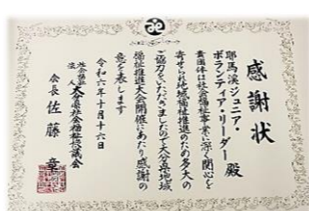 感謝状
耶馬溪ジュニア・
ボランティア・リーダー殿
貴団体は社会福祉事業に深く関心を
寄せられ地域福祉推進のため多大の
ご協力をいただきましたので大分県地域
福祉推進大会開催にあたり感謝の
意を表します
令和六年十月十六日
社会福祉法人大分県社会福祉協議会
会長 佐藤